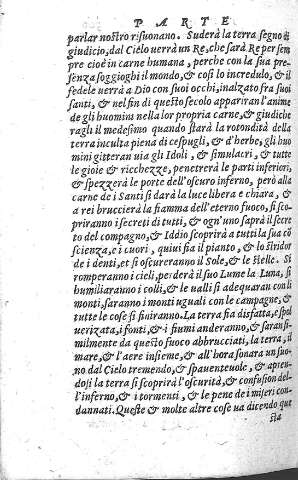 PARTE
parlar nostro risuonano. Suderà la terra segno di
giudicio, dal Cielo uerrà un Re, che sarà Re per sem
pre cioè in carne humana, perche con la sua pre-
senza soggioghi il mondo, & così lo incredulo, & il
fedele uerrà a Dio con suoi occhi, inalzato fra suoi
santi, & nel fin di questo secolo appariran l'anime
de gli huomini nella lor propria carne, & giudiche
ragli il medesimo quando starà la rotondità della
terra inculta piena di cespugli, & d'herbe, gli huo
mini gitteran uia gli Idoli, & simulacri, & tutte
le gioie & ricchezze, penetrerà le parti inferiori,
& spezzerà le porte dell'oscuro inferno, però alla
carne de i Santi si darà la luce libera e chiara, &
a rei bruccierà la fiamma dell'eterno fuoco, si sco-
priranno i secreti di tutti, & ogn'uno saprà il secre
to del compagno, & Iddio scoprirà a tutti la sua cõ
scienza, e i cuori, quiui fia il pianto, & lo stridor
de i denti, et si oscureranno il Sole, & le stelle. Si
romperanno i cieli, perderà il suo Lume la Luna, si
humiliaranno i colli, & le ualli si adequaran con li
monti, saranno i monti uguali con le campagne, &
tutte le cose si finiranno. La terra fia disfatta, e spol
uerizata, i fonti, & i fiumi anderanno, & saran si-
milmente da questo fuoco abbrucciati, la terra, il
mare, & l'aere insieme, & all'hora sonara un suo-
no dal Cielo tremendo, & spauenteuole, & apren-
dosi la terra si scoprirà l'oscurità, & confusion del-
l'inferno, & i tormenti, & le pene de i miseri con-
dannati. Queste & molte altre cose ua dicendo que
sta